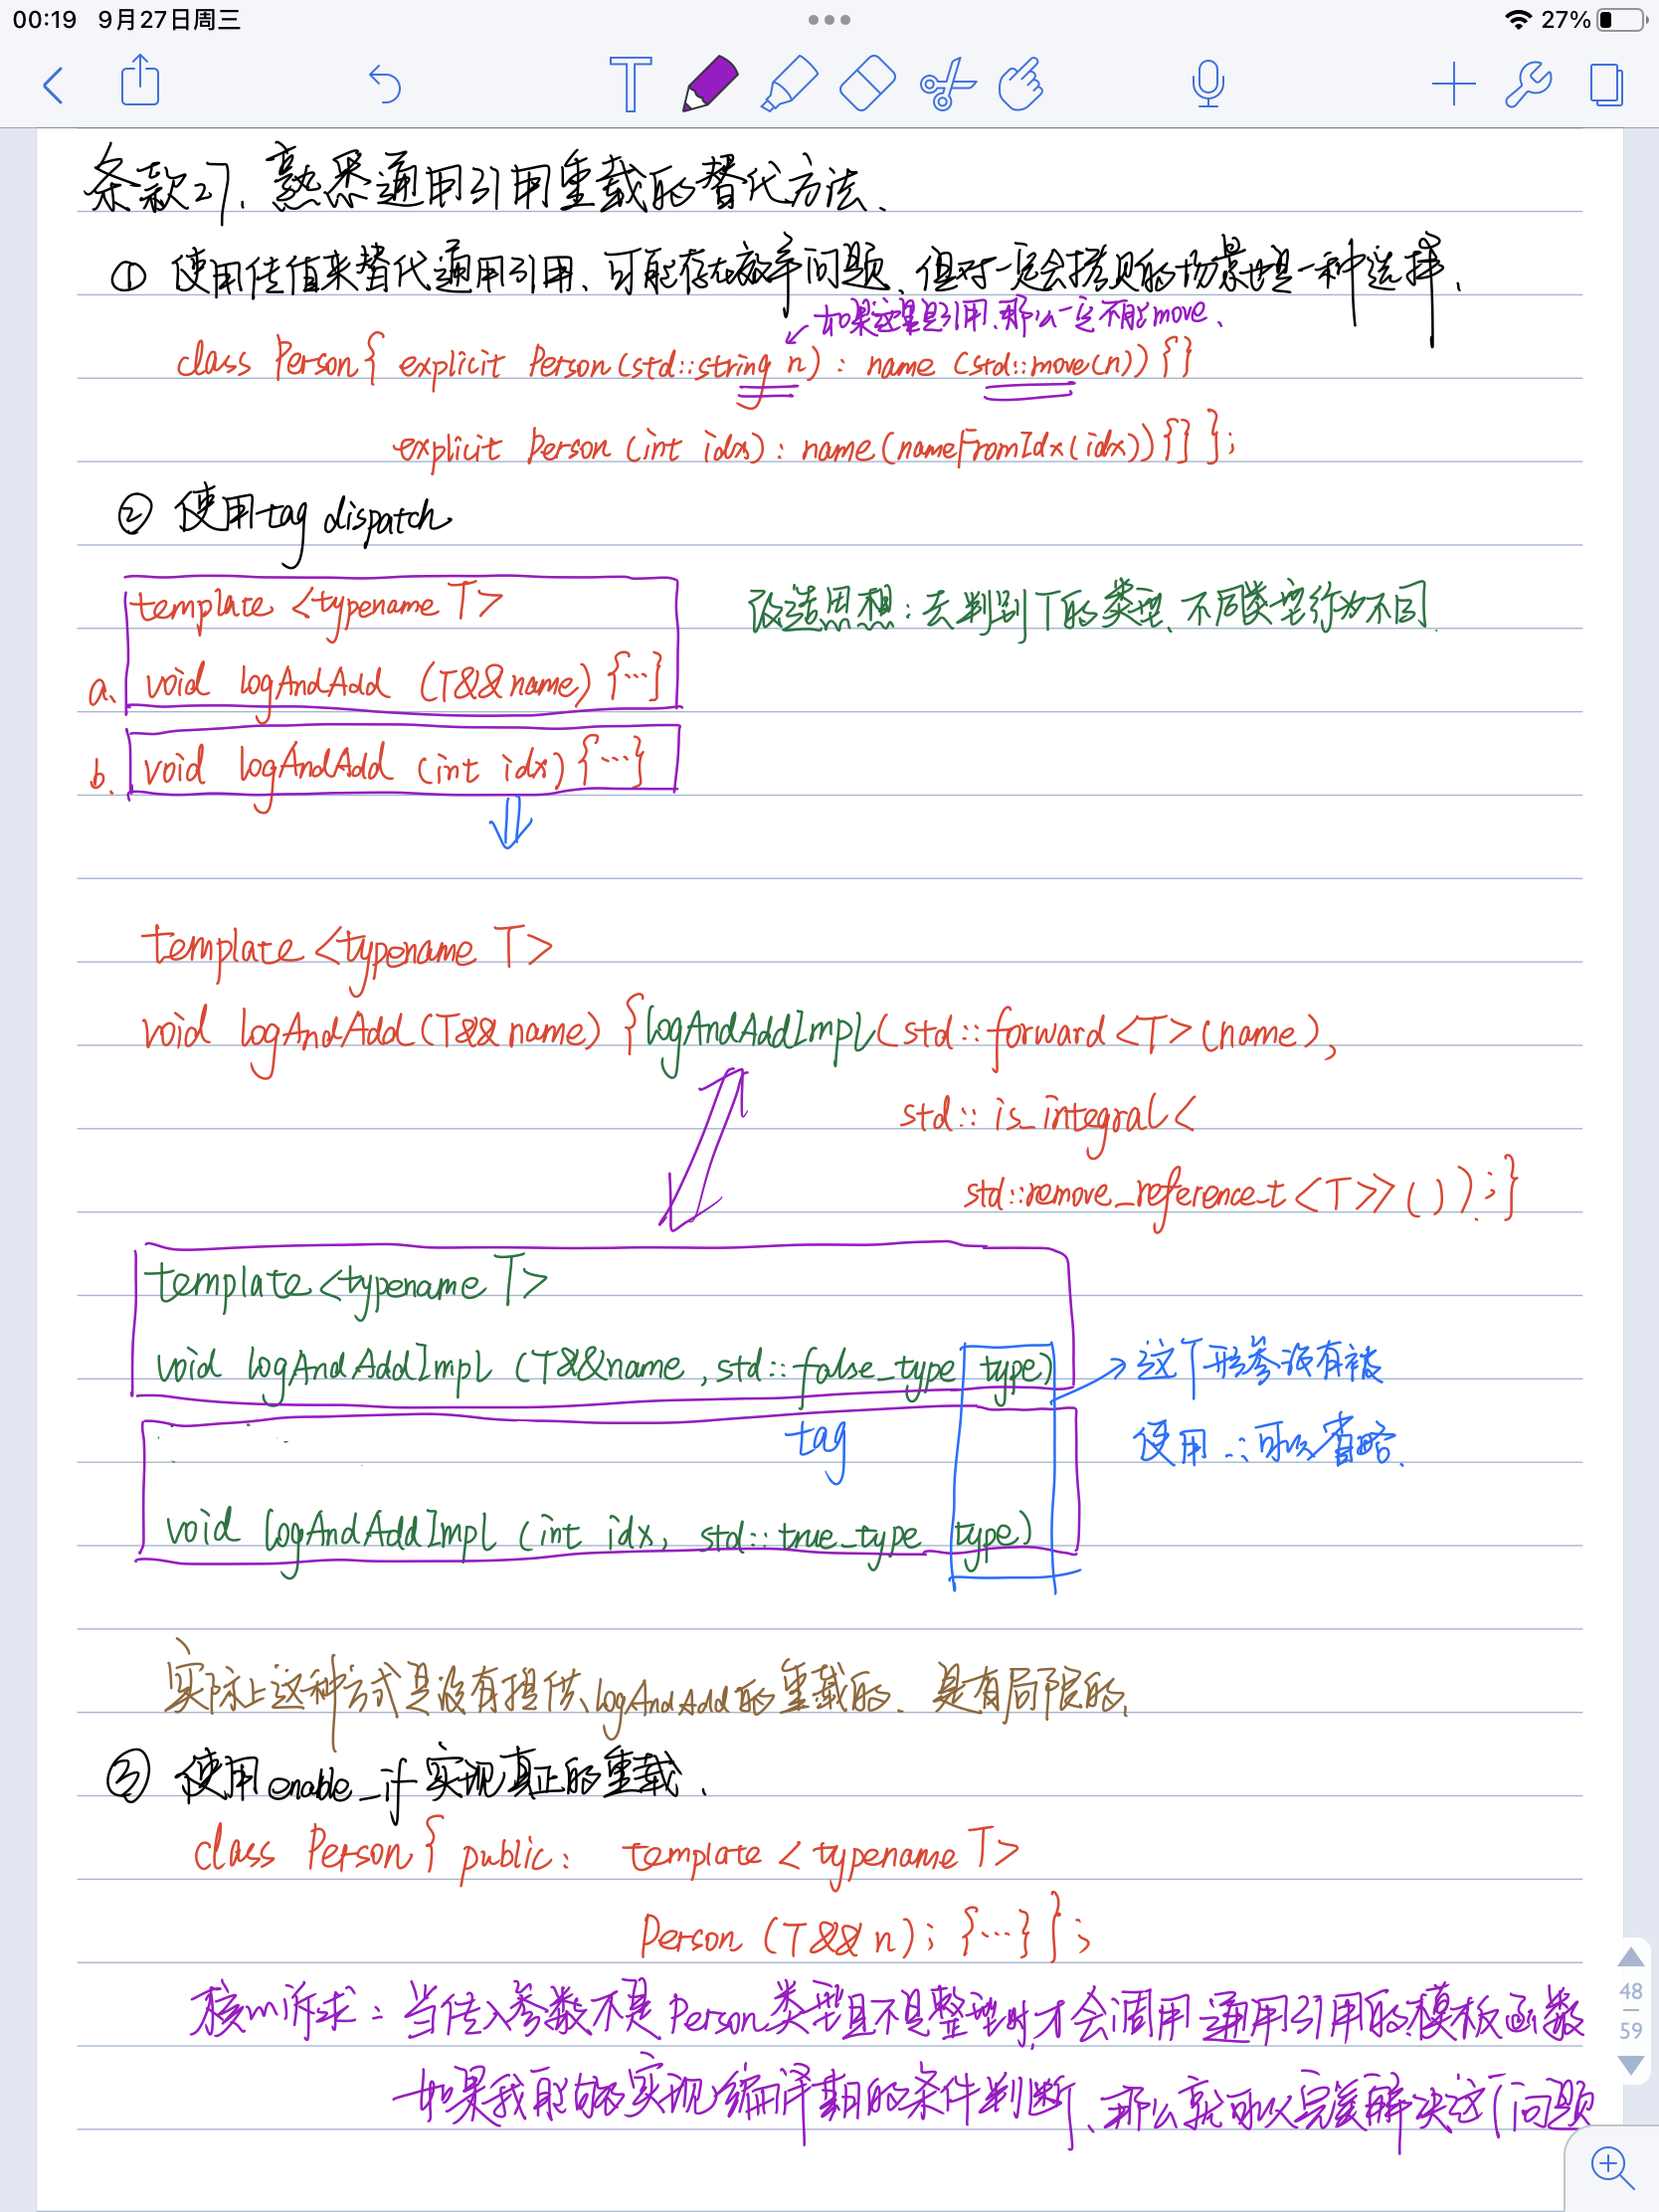 00:19 9月27日周三
27%
条款27、熟悉通用引用重载的替代方法、
① 使用传值来替代通用引用、可能存在效率问题、但对一定会拷贝的场景也是一种选择、
如果这里是引用、那么一定不能move、
class Person{ explicit Person(std::string n) : name (std::move(n)) {}
explicit Person (int idx) : name(nameFromIdx(idx)) {} };
② 使用tag dispatch
template <typename T>
改造思想：去判别T的类型、不同类型行为不同.
a. void logAndAdd (T&&name) {…}
b. void logAndAdd (int idx) {…}
template <typename T>
void logAndAdd(T&&name) {logAndAddImpl(std::forward<T>(name),
std::is_integral<
std::remove_reference_t<T>>());}
template <typename T>
void logAndAddImpl (T&&name, std::false_type type)
这个形参没有被
tag
使用 ∴可以省略.
void logAndAddImpl (int idx, std::true_type type)
实际上这种方式是没有提供logAndAdd的重载的、是有局限的,
③ 使用enable_if实现真正的重载、
class Person{ public: template <typename T>
Person (T&& n); {…} };
核心诉求：当传入参数不是Person类型且不是整型时,才会调用通用引用的模板函数
如果我能够实现编译期的条件判断、那么就可以完美解决这个问题
48
59